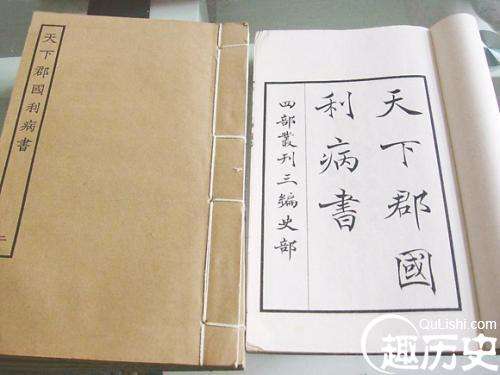 天下郡國利病書
天下郡國
利病書
四部叢刊三編史部
QuLishi.com
趣历史